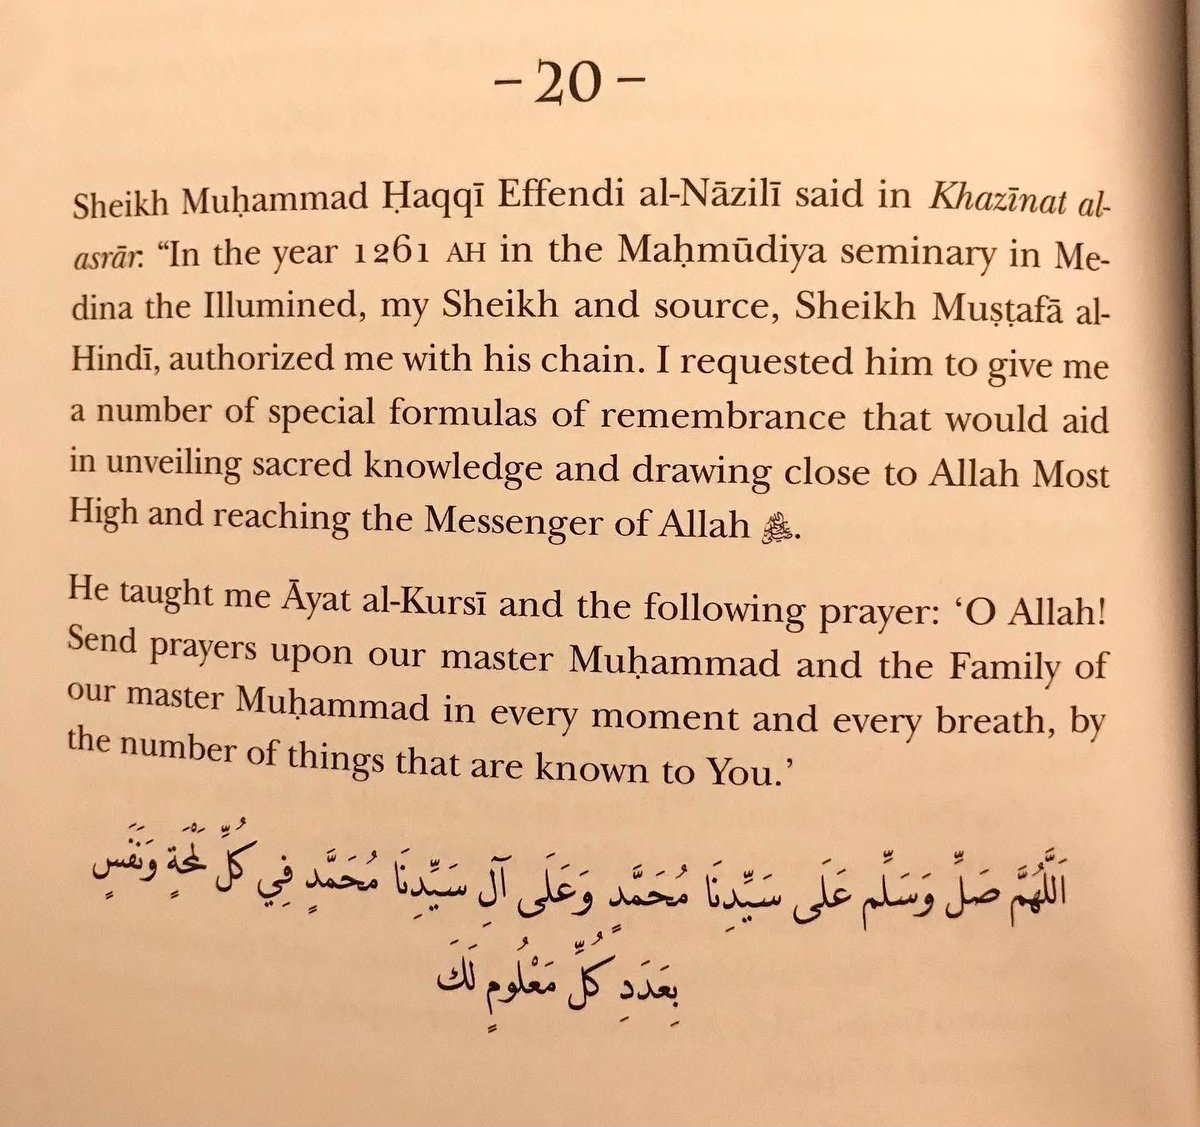 – 20 –
Sheikh Muḥammad Ḥaqqī Effendi al-Nāzilī said in Khazīnat al-
asrār: “In the year 1261 AH in the Maḥmūdiya seminary in Me-
dina the Illumined, my Sheikh and source, Sheikh Muṣṭafā al-
Hindī, authorized me with his chain. I requested him to give me
a number of special formulas of remembrance that would aid
in unveiling sacred knowledge and drawing close to Allah Most
High and reaching the Messenger of Allah ﷺ.
He taught me Āyat al-Kursī and the following prayer: ‘O Allah!
Send prayers upon our master Muḥammad and the Family of
our master Muḥammad in every moment and every breath, by
the number of things that are known to You.’
اَللَّهُمَّ صَلِّ وَسَلِّم عَلَى سَيِّدِنَا مُحَمَّدٍ وَعَلَى آلِ سَيِّدِنَا مُحَمَّدٍ فِي كُلِّ لَمْحَةٍ وَنَفَسٍ
بِعَدَدِ كُلِّ مَعْلُومٍ لَكَ